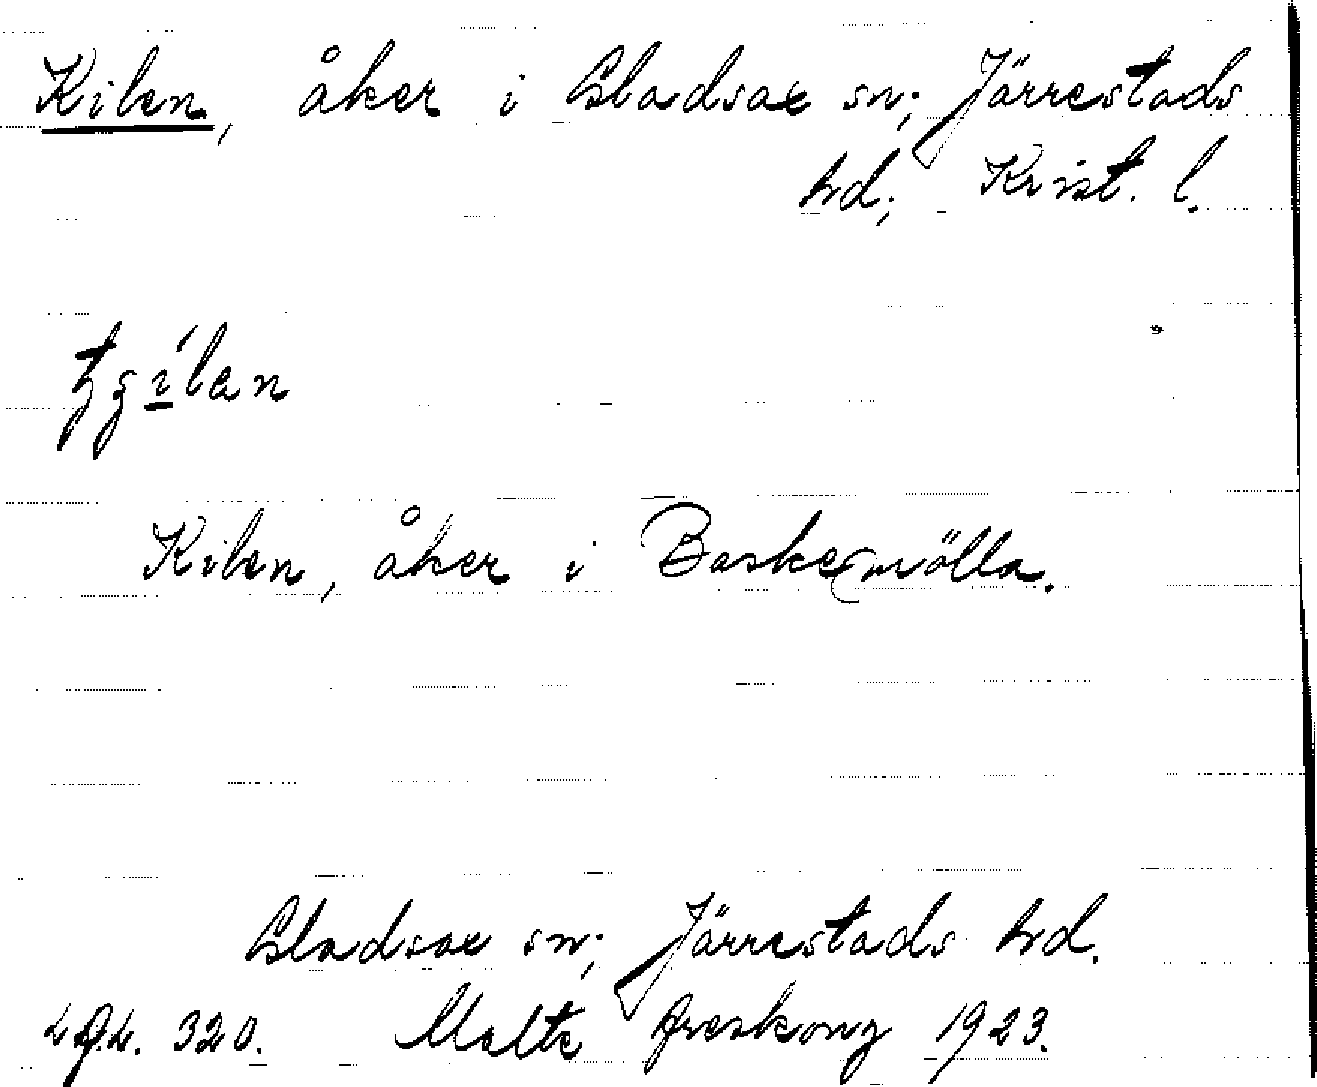 Kilen, åker i Gladsax sn; Järrestads
hd; Krist. l.
Kilen, åker i Baskemölla.
Gladsax sn; Järrestads hd.
320. Malte Areskong 1923.